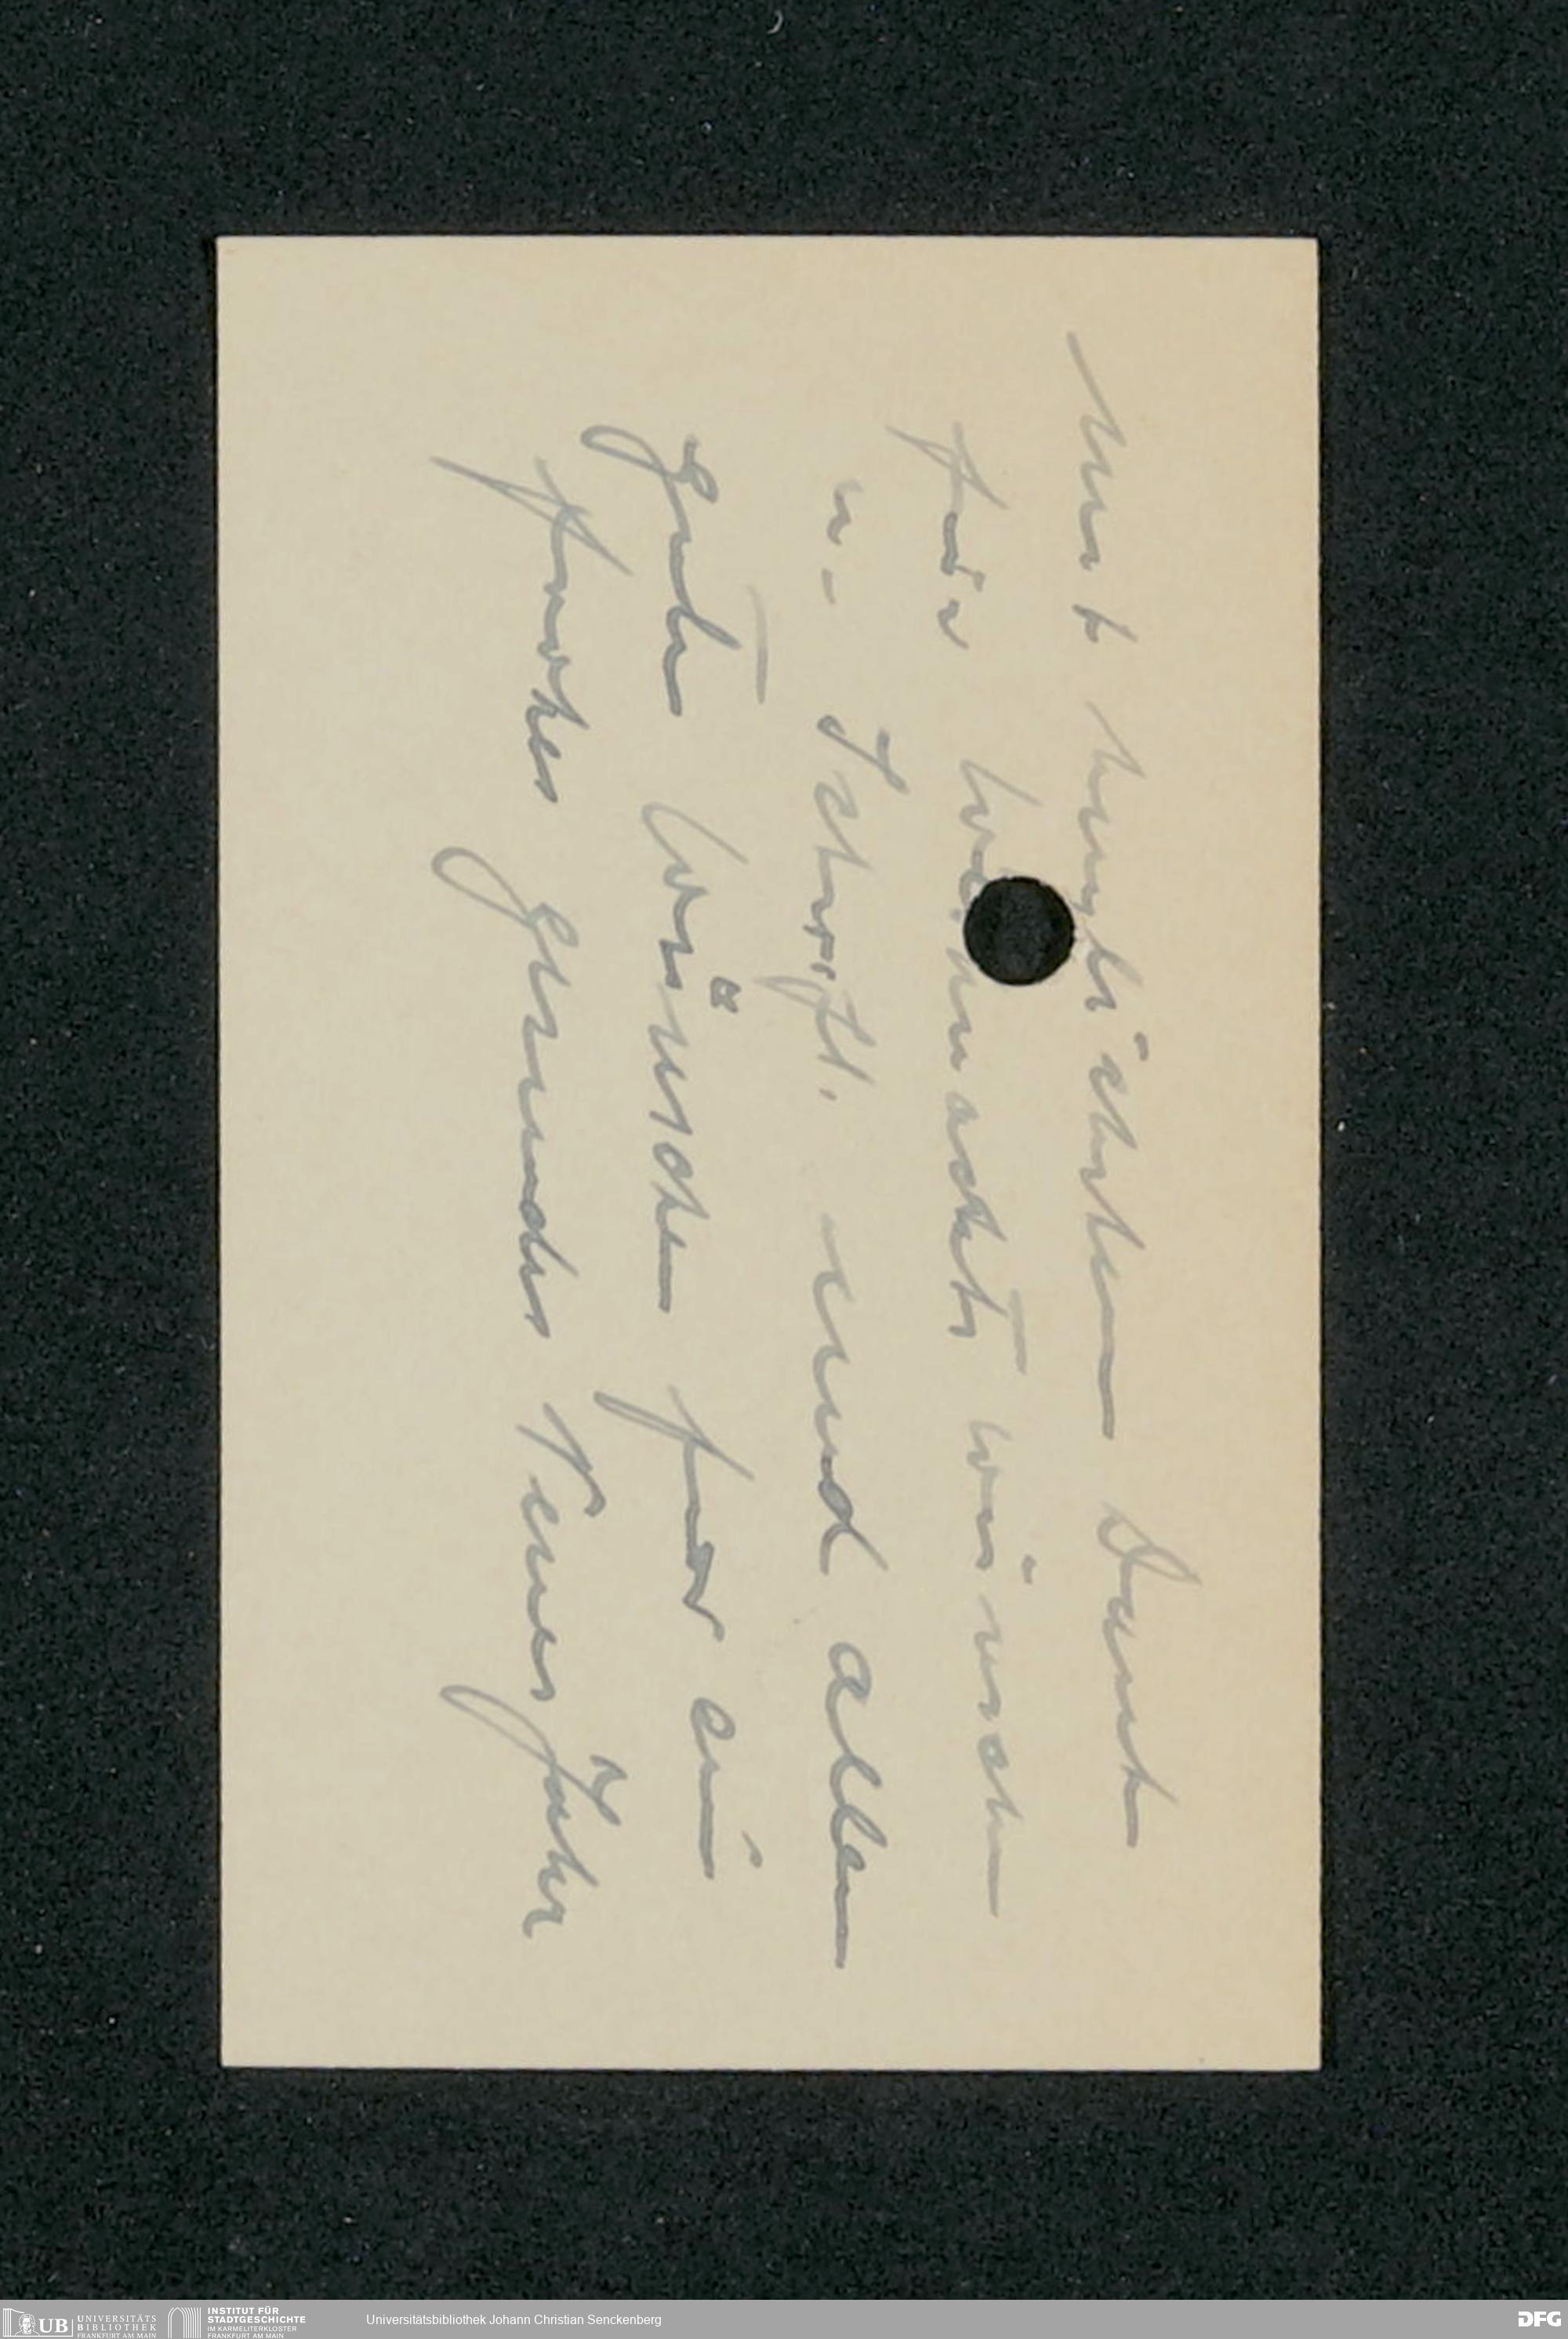 Mit herzlichstem Dank
für Weihnachtswünsche
u. Schrift. und allen
guten Wünschen für ein
frohes gesundes Neues Jahr
UB UNIVERSITÄTS
BIBLIOTHEK
FRANKFURT AM MAIN
INSTITUT FÜR
STADTGESCHICHTE
IM KARMELITERKLOSTER
FRANKFURT AM MAIN
Universitätsbibliothek Johann Christian Senckenberg
DFG